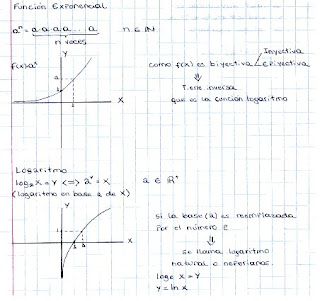 Función Exponencial
aⁿ = a.a.a.a... a n ∈ IN
n veces
f(x)=aˣ
Y
X
como f(x) es biyectiva
Inyectiva
Epiyectiva
⇓
Tiene inversa
que es la función logaritmo
Logaritmo
logₐ X = Y <=> aʸ = X a ∈ R⁺
(logaritmo en base a de X)
Y
X
si la base (a) es reemplazada
por el número e
⇓
se llama logaritmo
natural o neperiano.
logₑ X = Y
Y = ln X